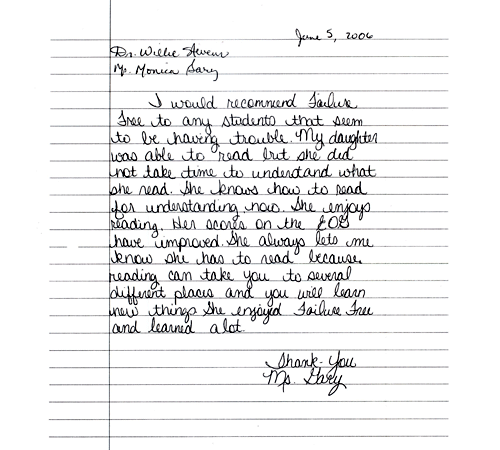 June 5, 2006
Dr. Willie
Ms. Monica Gary
I would recommend Failure
Free to any students that seem
to be having trouble. My daughter
was able to read but she did
not take time to understand what
she read. She knows how to read
for understanding now. She enjoys
reading. Her scores on the EOG
have improved. She always lets me
know she has to read because
reading can take you to several
different places and you will learn
new things She enjoyed Failure Free
and learned a lot.
Thank-You
Ms. Gary